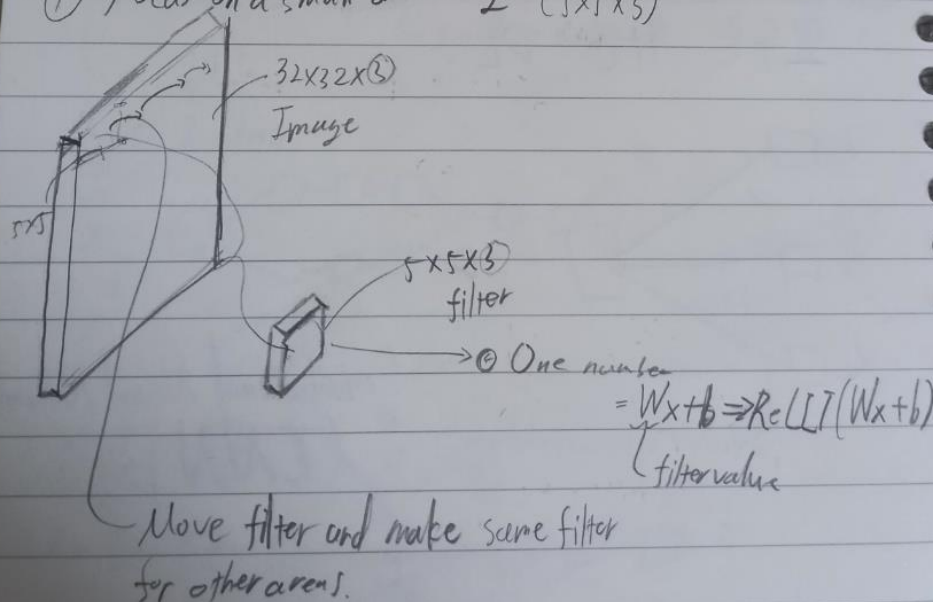 ① Focus on a small (5x5x3)
32x32x③
Image
5x5
5x5x③
filter
One number
= Wx+b ⇒ ReLU(Wx+b)
filter value
Move filter and make same filter
for other areas.